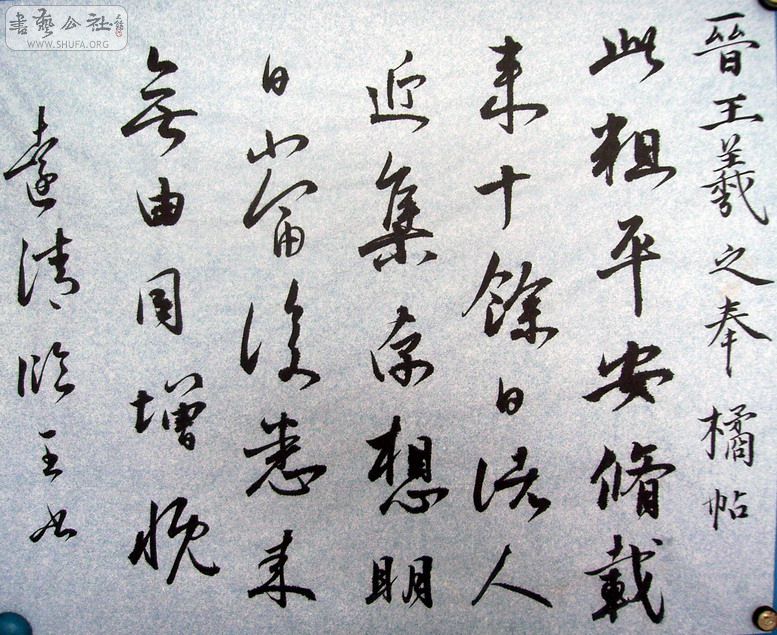 書藝公社
WWW.SHUFA.ORG
晉王羲之奉橘帖
此粗平安脩載
来十餘日諸人
近集存想明
日當復悉来
無由同增慨
遠清臨王